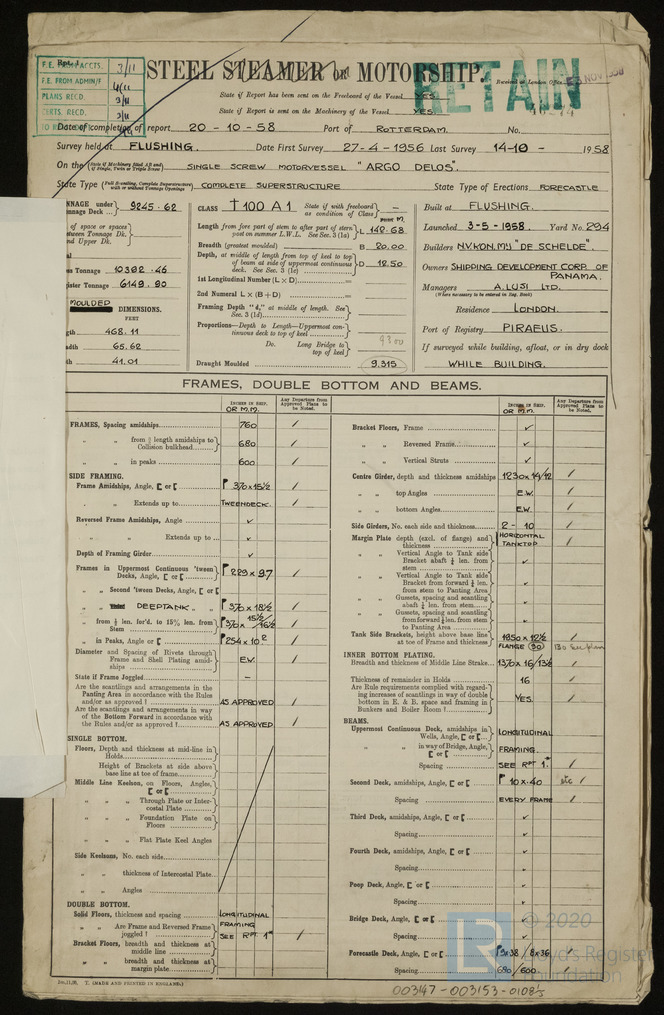 Rpt. 1
F.E. FROM ACCTS. 3/11
F.E. FROM ADMIN/F 4/11
PLANS RECD. 3/11
CERTS. RECD. 3/11
STEEL STEAMER or MOTORSHIP.
RETAIN
Received at London Office 3 NOV 1958
State if Report has been sent on the Freeboard of the Vessel YES.
State if Report is sent on the Machinery of the Vessel YES.
Date of completion of report 20-10-58 Port of ROTTERDAM. No.
Survey held at FLUSHING. Date First Survey 27-4-1956 Last Survey 14-10-1958
On the (State if Machinery fitted Aft and if Single, Twin or Triple Screw) SINGLE SCREW MOTORVESSEL "ARGO DELOS".
State Type (Full Scantling, Complete Superstructure with or without Tonnage Openings) COMPLETE SUPERSTRUCTURE State Type of Erections FORECASTLE
NNAGE under
nnage Deck ... 9245.62
of space or spaces
etween Tonnage Dk.
nd Upper Dk.
ss Tonnage 10392.46
gister Tonnage 6149.90
MOULDED DIMENSIONS.
FEET
gth 468.11
adth 65.62
th 41.01
CLASS † 100 A1 State if with freeboard as condition of Class
Length from fore part of stem to after part of stern post on summer L.W.L. See Sec. 3 (1a) L 142.68
Breadth (greatest moulded) B 20.00
Depth, at middle of length from top of keel to top of beam at side of uppermost continuous deck. See Sec. 3 (1c) D 12.50
1st Longitudinal Number (L x D)
2nd Numeral L x (B+D)
Framing Depth "d," at middle of length. See Sec. 3 (1d)
Proportions—Depth to Length—Uppermost continuous deck to top of keel
Do. Long Bridge to top of keel
9300
Draught Moulded 9.315
Built at FLUSHING.
Launched 3-5-1958. Yard No. 294
Builders N.V. KON. MY "DE SCHELDE".
Owners SHIPPING DEVELOPMENT CORP. OF PANAMA.
Managers A. LUSI LTD.
(Where necessary to be entered in Reg. Book)
Residence LONDON.
Port of Registry PIRAEUS.
If surveyed while building, afloat, or in dry dock
WHILE BUILDING.
FRAMES, DOUBLE BOTTOM AND BEAMS.
INCHES IN SHIP. OR M.M. Any Departure from Approved Plans to be Noted.
FRAMES, Spacing amidships 760 /
" " from 1/5 length amidships to Collision bulkhead 680 /
" " in peaks 600 /
SIDE FRAMING.
Frame Amidships, Angle, [ or [ 370x15½ /
" " Extends up to TWEENDECK. /
Reversed Frame Amidships, Angle ✓
" " Extends up to ✓
Depth of Framing Girder ✓
Frames in Uppermost Continuous 'tween Decks, Angle, [ or [ 229x9.7 /
" " Second 'tween Decks, Angle, [ or [
" " DEEPTANK " 370x18½ /
" " from ⅕ len. for'd. to 15% len. from Stem 370x 15½/16½ /
" " in Peaks, Angle or [ 254x10² /
Diameter and Spacing of Rivets through Frame and Shell Plating amidships E.W. /
State if Frame Joggled —
Are the scantlings and arrangements in the Panting Area in accordance with the Rules and/or as approved ? AS APPROVED /
Are the scantlings and arrangements in way of the Bottom Forward in accordance with the Rules and/or as approved ? AS APPROVED /
SINGLE BOTTOM.
Floors, Depth and thickness at mid-line in Holds
Height of Brackets at side above base line at toe of frame
Middle Line Keelson, on Floors, Angles, [ or [
" " Through Plate or Intercostal Plate
" " Foundation Plate on Floors
" " Flat Plate Keel Angles
Side Keelsons, No. each side
" " thickness of Intercostal Plate
" " Angles
DOUBLE BOTTOM.
Solid Floors, thickness and spacing LONGITUDINAL
" " Are Frame and Reversed Frame joggled ? FRAMING
SEE RPT 1* /
Bracket Floors, breadth and thickness at middle line
" " breadth and thickness at margin plate
INCHES IN SHIP. OR M.M. Any Departure from Approved Plans to be Noted.
Bracket Floors, Frame ✓
" " Reversed Frame ✓
" " Vertical Struts ✓
Centre Girder, depth and thickness amidships 1230x14/12 /
" " top Angles E.W. /
" " bottom Angles E.W. /
Side Girders, No. each side and thickness 2 - 10 /
Margin Plate depth (excl. of flange) and thickness HORIZONTAL TANKTOP /
" " Vertical Angle to Tank side Bracket abaft ¼ len. from stem ✓
" " Vertical Angle to Tank side Bracket from forward ¼ len. from stem to Panting Area ✓
" " Gussets, spacing and scantling abaft ¼ len. from stem ✓
" " Gussets, spacing and scantling from forward ¼ len. from stem to Panting Area ✓
Tank Side Brackets, height above base line at toe of Frame and thickness 1850x12½ /
FLANGE 90
INNER BOTTOM PLATING.
Breadth and thickness of Middle Line Strake 1370x16/13½ /
Thickness of remainder in Holds 16 /
Are Rule requirements complied with regarding increases of scantlings in way of double bottom in E. & B. space and framing in Bunkers and Boiler Room ? YES. /
BEAMS.
Uppermost Continuous Deck, amidships in Wells, Angle, [ or [ LONGITUDINAL
" " in way of Bridge, Angle, [ or [ FRAMING.
Spacing SEE RPT 1* /
Second Deck, amidships, Angle, [ or [ 10x.40 etc /
Spacing EVERY FRAME /
Third Deck, amidships, Angle, [ or [ ✓
Spacing ✓
Fourth Deck, amidships, Angle, [ or [ ✓
Spacing ✓
Poop Deck, Angle, [ or [ ✓
Spacing ✓
Bridge Deck, Angle, [ or [ ✓
Spacing ✓
Forecastle Deck, Angle, [ or [ 9x38 / 8x36 /
Spacing 680/600 /
LR © 2020
Lloyd's Register
Foundation
T. (MADE AND PRINTED IN ENGLAND.)
003147-003153-0108⅓